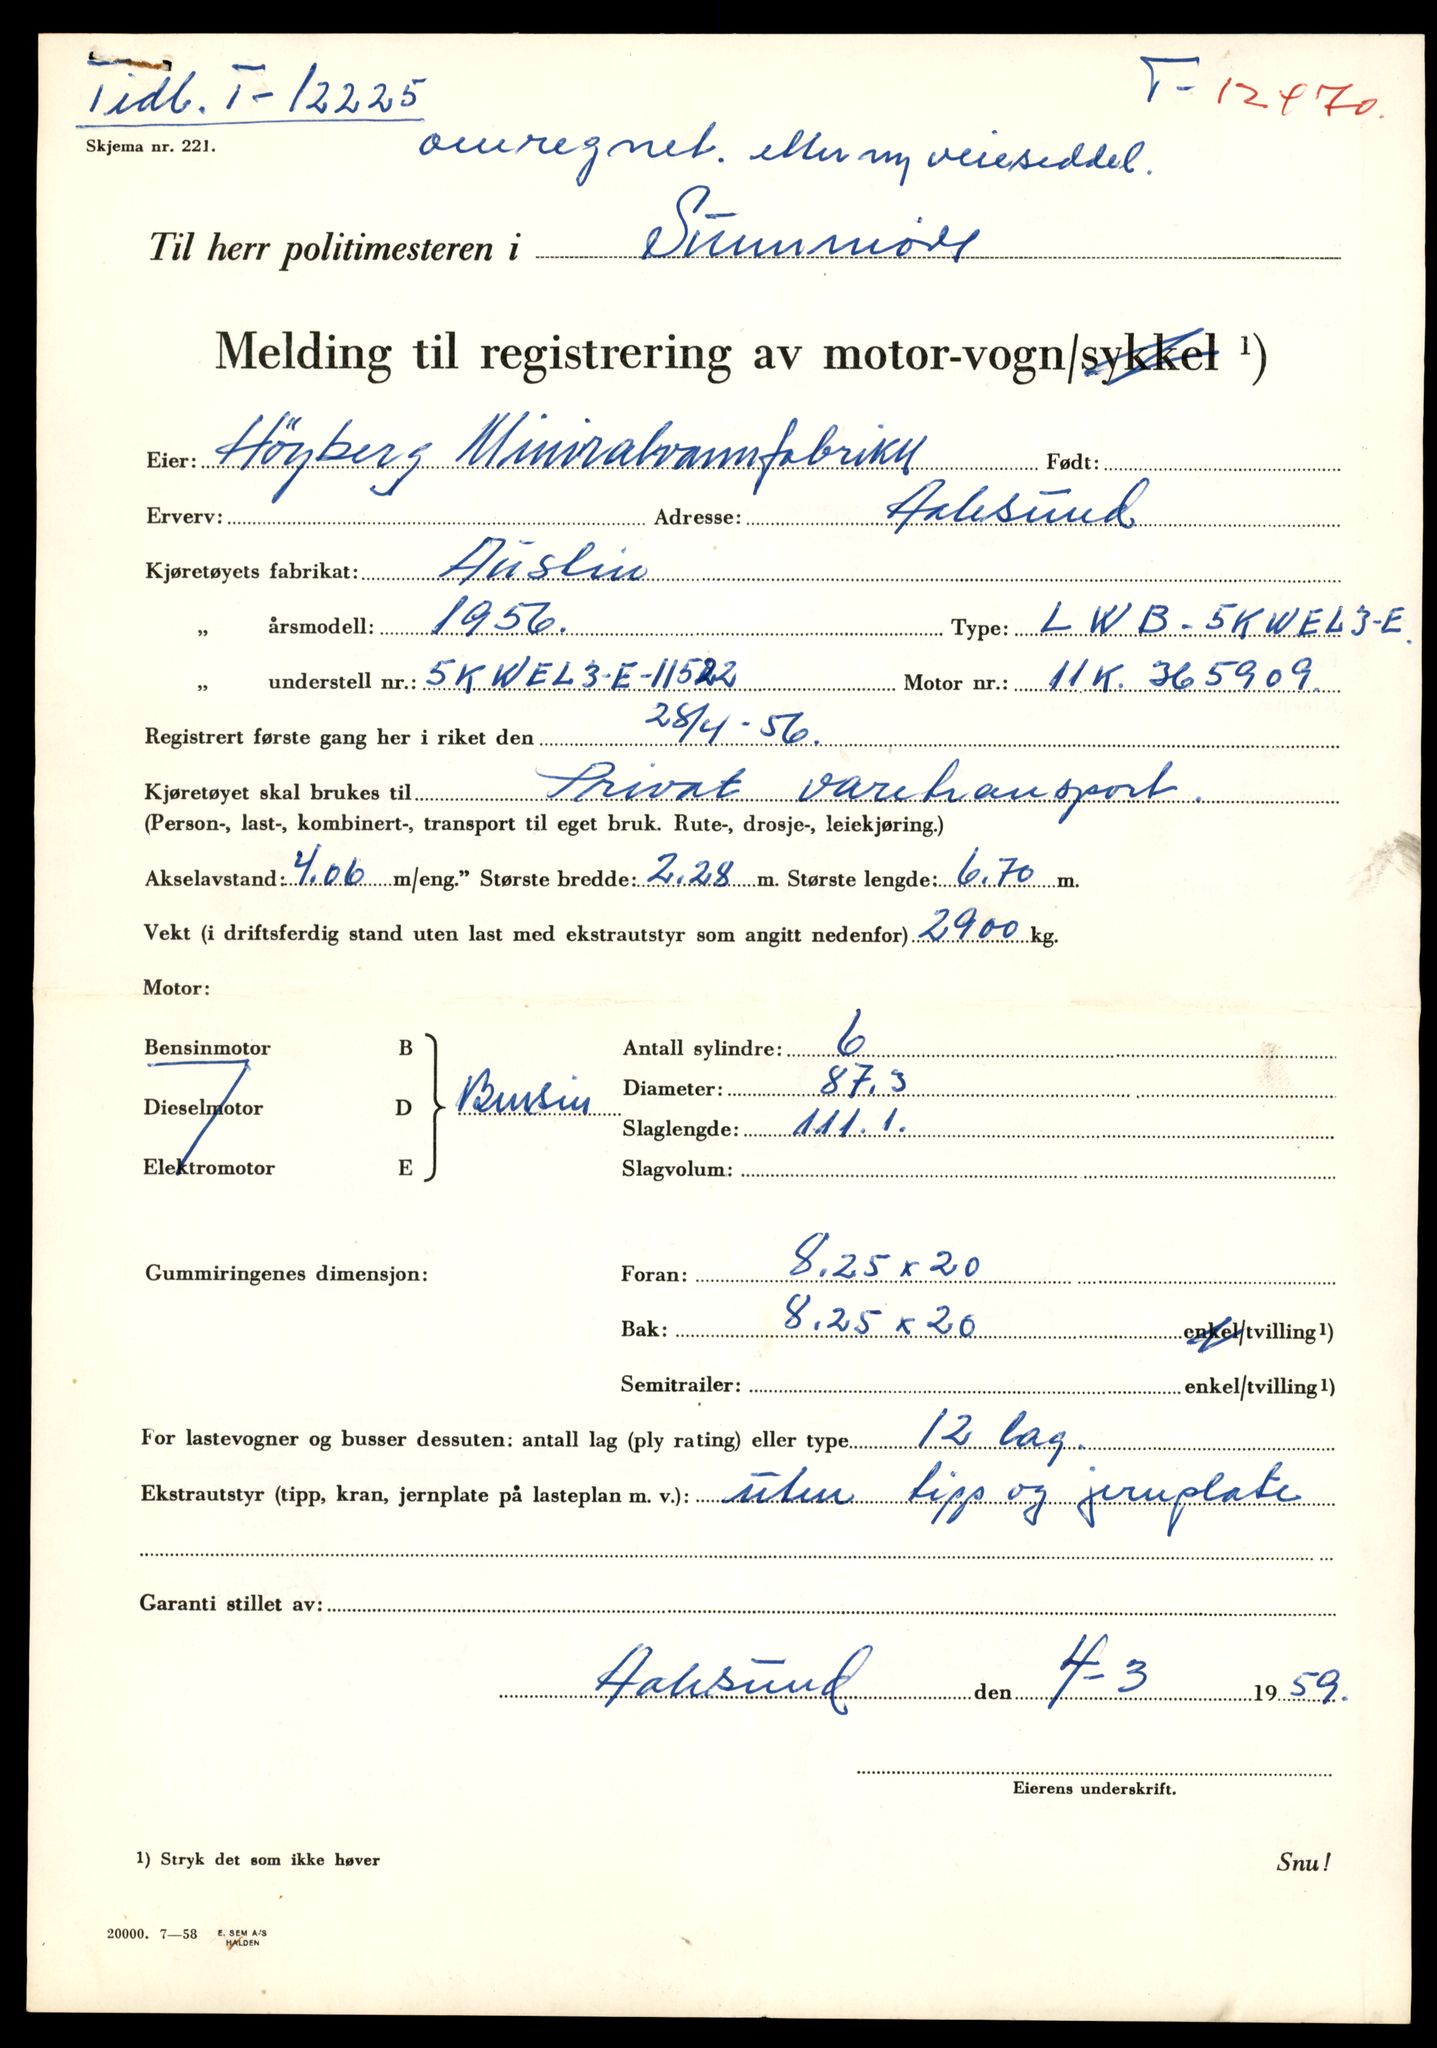 Tidl. T-12225
T-12470.
Skjema nr. 221.
omregnet. etter ny veieseddel.
Til herr politimesteren i Sunnmöre
Melding til registrering av motor-vogn/sykkel 1)
Eier: Höyberg Mineralvannfabrikk Født:
Erverv: Adresse: Aalesund
Kjøretøyets fabrikat: Austin
„ årsmodell: 1956. Type: LWB-5KWEL3-E.
„ understell nr.: 5KWEL3-E-11522 Motor nr.: 11K. 365909.
Registrert første gang her i riket den 28/4-56.
Kjøretøyet skal brukes til Privat varetransport.
(Person-, last-, kombinert-, transport til eget bruk. Rute-, drosje-, leiekjøring.)
Akselavstand: 4.06 m/eng.” Største bredde: 2.28 m. Største lengde: 6.70 m.
Vekt (i driftsferdig stand uten last med ekstrautstyr som angitt nedenfor) 2900 kg.
Motor:
Bensinmotor B
Dieselmotor D
Elektromotor E
Bensin
Antall sylindre: 6
Diameter: 87.3
Slaglengde: 111.1.
Slagvolum:
Gummiringenes dimensjon: Foran: 8.25 x 20
Bak: 8.25 x 20 enkel/tvilling 1)
Semitrailer: enkel/tvilling 1)
For lastevogner og busser dessuten: antall lag (ply rating) eller type 12 lag.
Ekstrautstyr (tipp, kran, jernplate på lasteplan m. v.): uten tipp og jernplate
Garanti stillet av:
Aalesund den 4-3 1959.
Eierens underskrift.
1) Stryk det som ikke høver
Snu!
20000. 7—58 E. SEM A/S
HALDEN